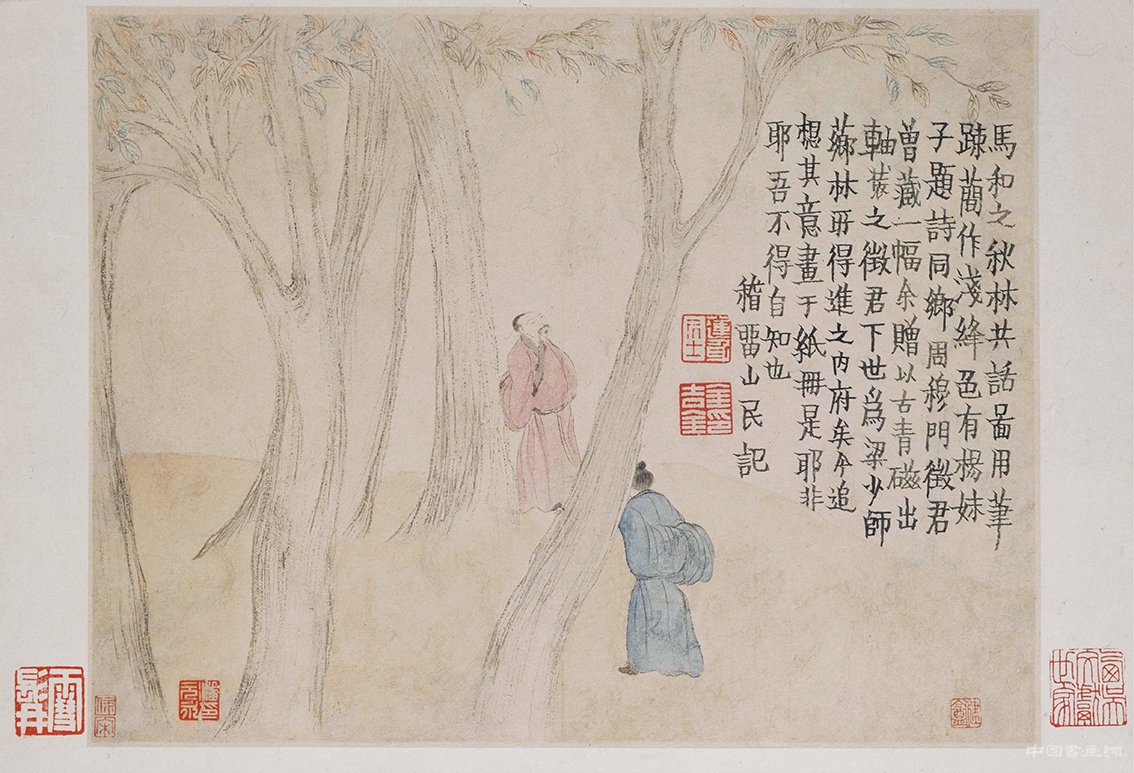 馬和之秋林共話啚用筆
踈蕳作淺絳色有楊妹
子題詩同鄉周穆門徵君
曾藏一幅余贈以古青磁出
軸裝之徵君下世爲梁少師
薌林所得進之内府矣今追
想其意畫于紙冊是耶非
耶吾不得自知也
稽畱山民記
蓮身居士
金吉金印
中国書画網